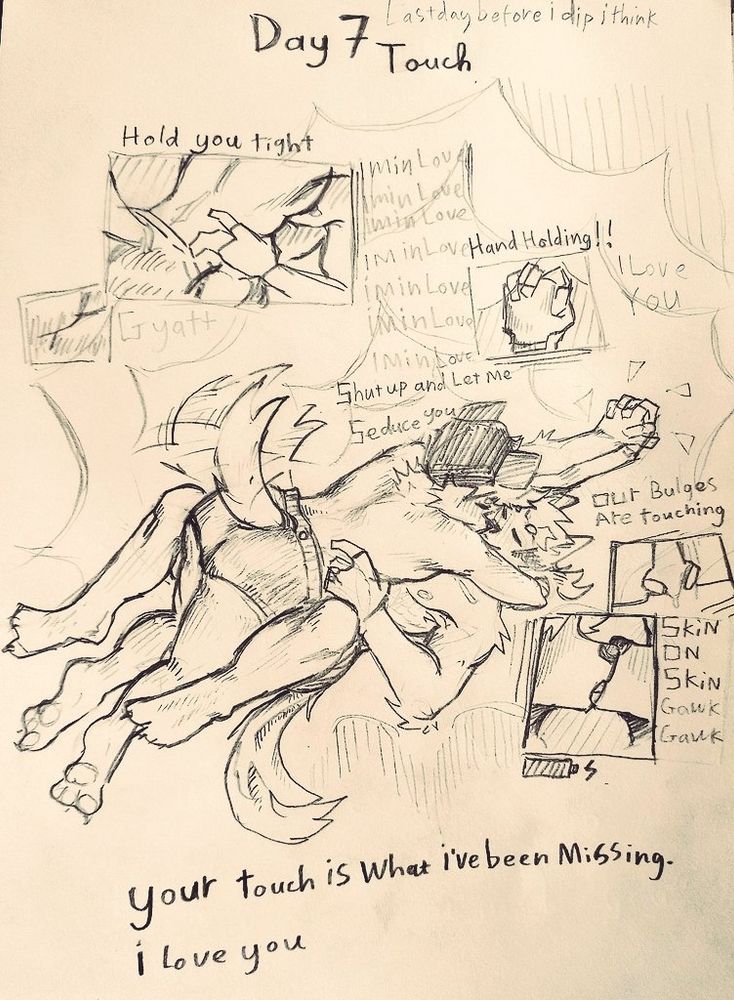 Last day before i dip i think
Day 7
Touch
Hold you tight
I'm in Love
I'm in Love
I'm in Love
I'm in Love
I'm in Love
I'm in Love
I'm in Love
Hand Holding!!
I Love
You
Gyatt
Shut up and Let Me
Seduce you
Our Bulges
Are touching
Skin
On
Skin
Gawk
Gawk
your touch is What i've been Missing.
i Love you